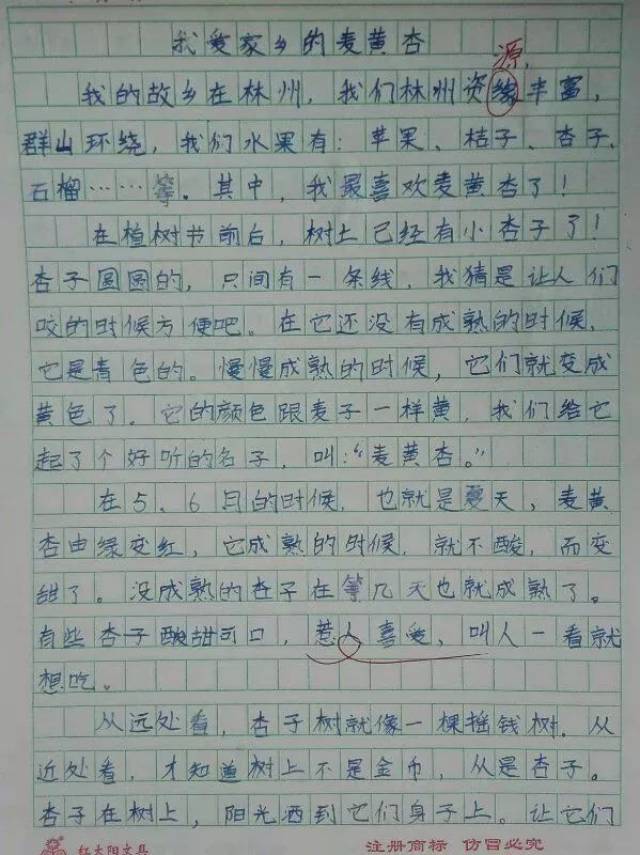 我爱家乡的麦黄杏
源
我的故乡在林州，我们林州资缘丰富，
群山环绕，我们水果有：苹果、桔子、杏子、
石榴……等。其中，我最喜欢麦黄杏了！
在植树节前后，树上已经有小杏子了！
杏子圆圆的，只间有一条线，我猜是让人们
咬的时候方便吧。在它还没有成熟的时候，
它是青色的。慢慢成熟的时候，它们就变成
黄色了。它的颜色跟麦子一样黄，我们给它
起了个好听的名子，叫：“麦黄杏。”
在5、6月的时候，也就是夏天，麦黄
杏由绿变红，它成熟的时候，就不酸，而变
甜了。没成熟的杏子在等几天也就成熟了。
有些杏子酸甜可口，惹人喜爱，叫人一看就
想吃。
从远处看，杏子树就像一棵摇钱树，从
近处看，才知道树上不是金币，从是杏子。
杏子在树上，阳光洒到它们身子上。让它们
红太阳文具
注册商标 仿冒必究